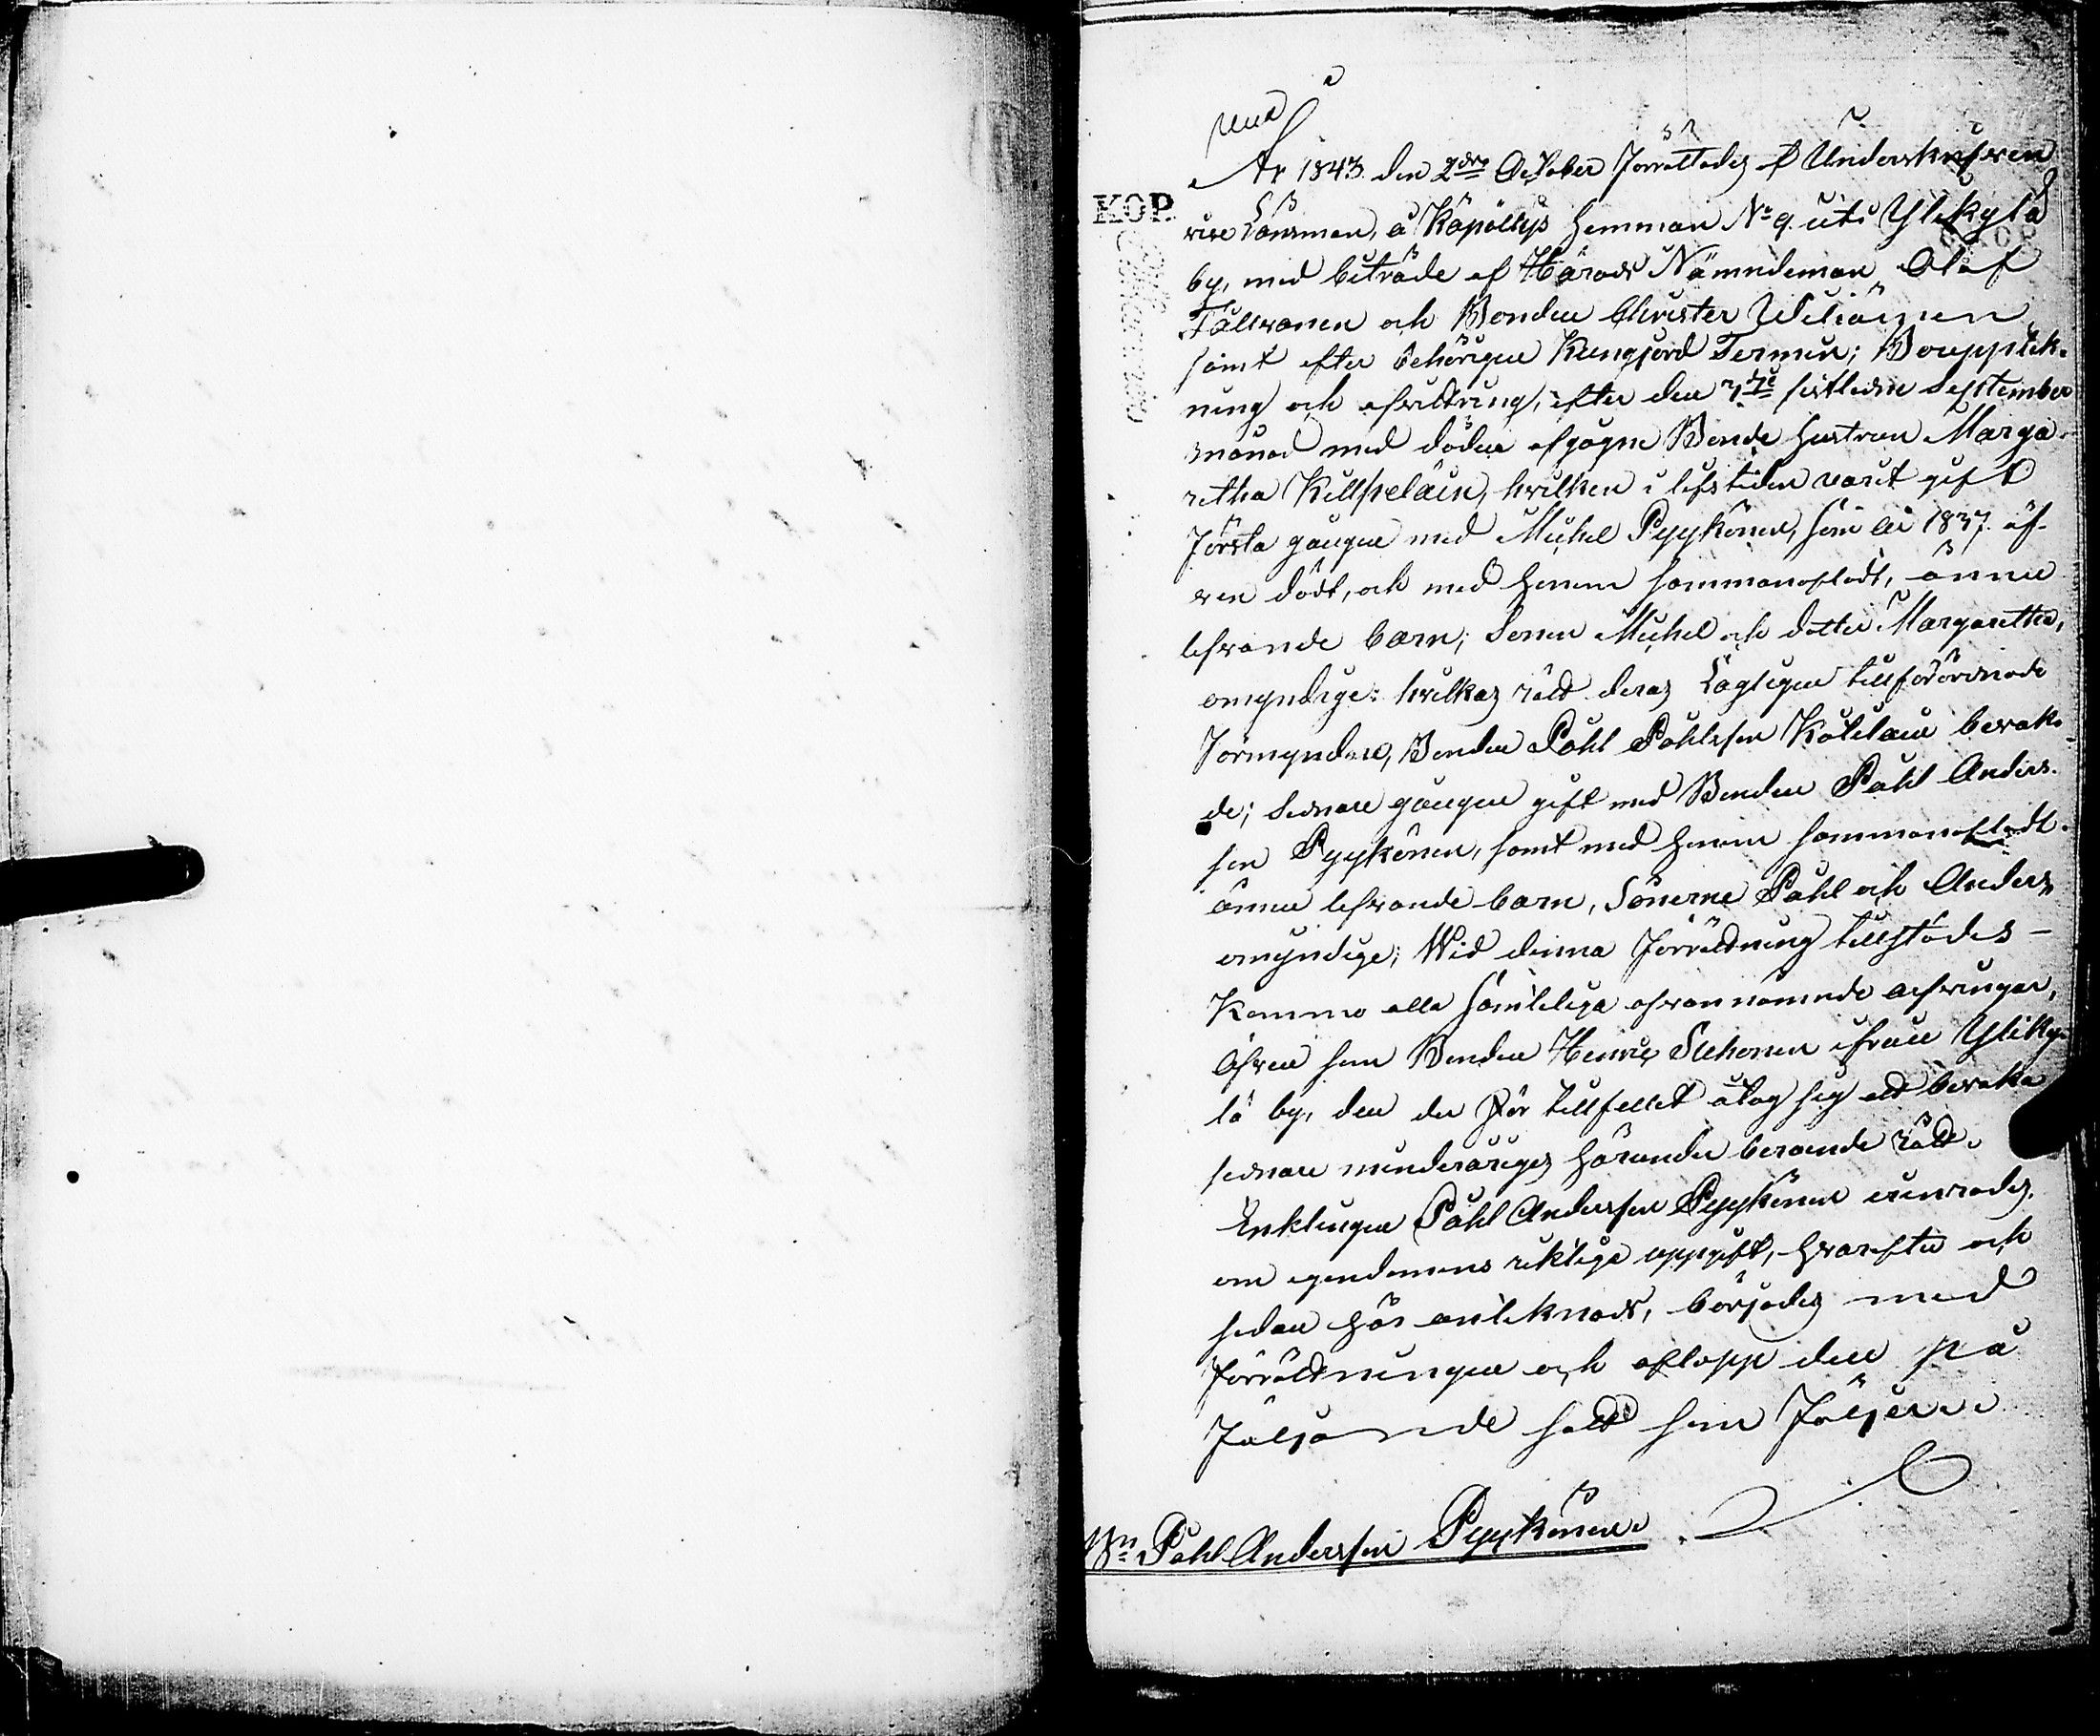 År 1843 den 2dra October Förrättades af Underskrefven
KOP.
vice Länsman, å Käpöllys hemman No 9 uti Ylikylä
by, med biträde af Härads Nämndeman Olof
Tållvanen och Bonden Christer Wäisänen
samt efter behörigen Kungjord Termin; Boupptek-
ning och afvittring, efter den 7de sistledne September
månad med döden afgågne Bonde hustrun Marga-
retha Killpeläin, hvilken i lifstiden varit gift
första gången med Michel Pyykönen, som år 1837 äf-
ven dödt, och med henne sammanafladt, ännu
lefvande barn; Sonen Michel och dotter Margaretha,
omyndige: hvilkas rätt deras Lagligen tillförordnade
Förmyndare, Bonden Påhl Påhlsson Kälkäin bevaka-
de; sednare gången gift med Bonden Påhl Anders-
son Pyykönen, samt med henne sammanafladt
ännu lefvande barn, Sönerne Påhl och Anders,
omyndige; Wid denna Förrättning tillstädes-
kommo alla samtliga ofvannämnde arfvingar,
äfven som Bonden Henric Siehonen ifrån Ylikylä
lä by, den der för tillfellet åtog sig att bevaka
sednare minderåriges härunder beroende rätt.
Enklingen Påhl Andersson Pyykönen erinrades
om egendomens riktiga uppgift, hvarefter och
sedan här anteknadt, börjades med
förrättningen och aflopp den på
följande sätt som Följer:
Bn Påhl Andersson Pyykönen